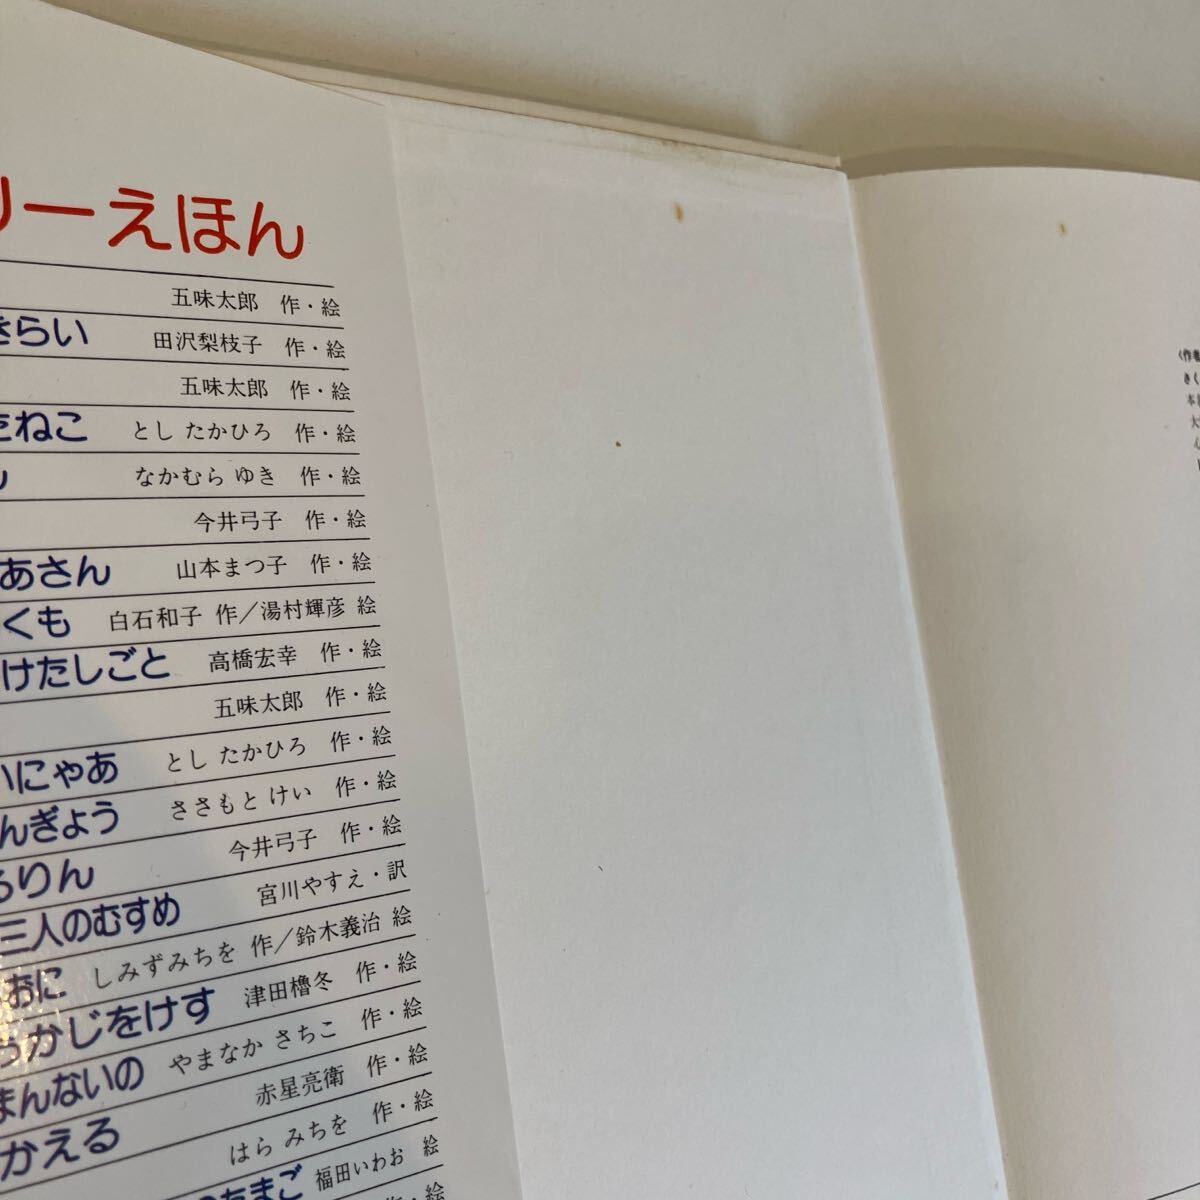 リーえほん
五味太郎 作・絵
きらい 田沢梨枝子 作・絵
五味太郎 作・絵
たねこ とし たかひろ 作・絵
なかむら ゆき 作・絵
今井弓子 作・絵
あさん 山本まつ子 作・絵
くも 白石和子 作／湯村輝彦 絵
けたしごと 高橋宏幸 作・絵
五味太郎 作・絵
いにゃあ とし たかひろ 作・絵
んぎょう ささもと けい 作・絵
りん 今井弓子 作・絵
三人のむすめ 宮川やすえ・訳
おに しみずみちを 作／鈴木義治 絵
かじをけす 津田櫓冬 作・絵
まんないの やまなか さちこ 作・絵
かえる 赤星亮衛 作・絵
はら みちを 作・絵
のたまご 福田いわお 絵
作・絵
〈作者
きく
本
大
心